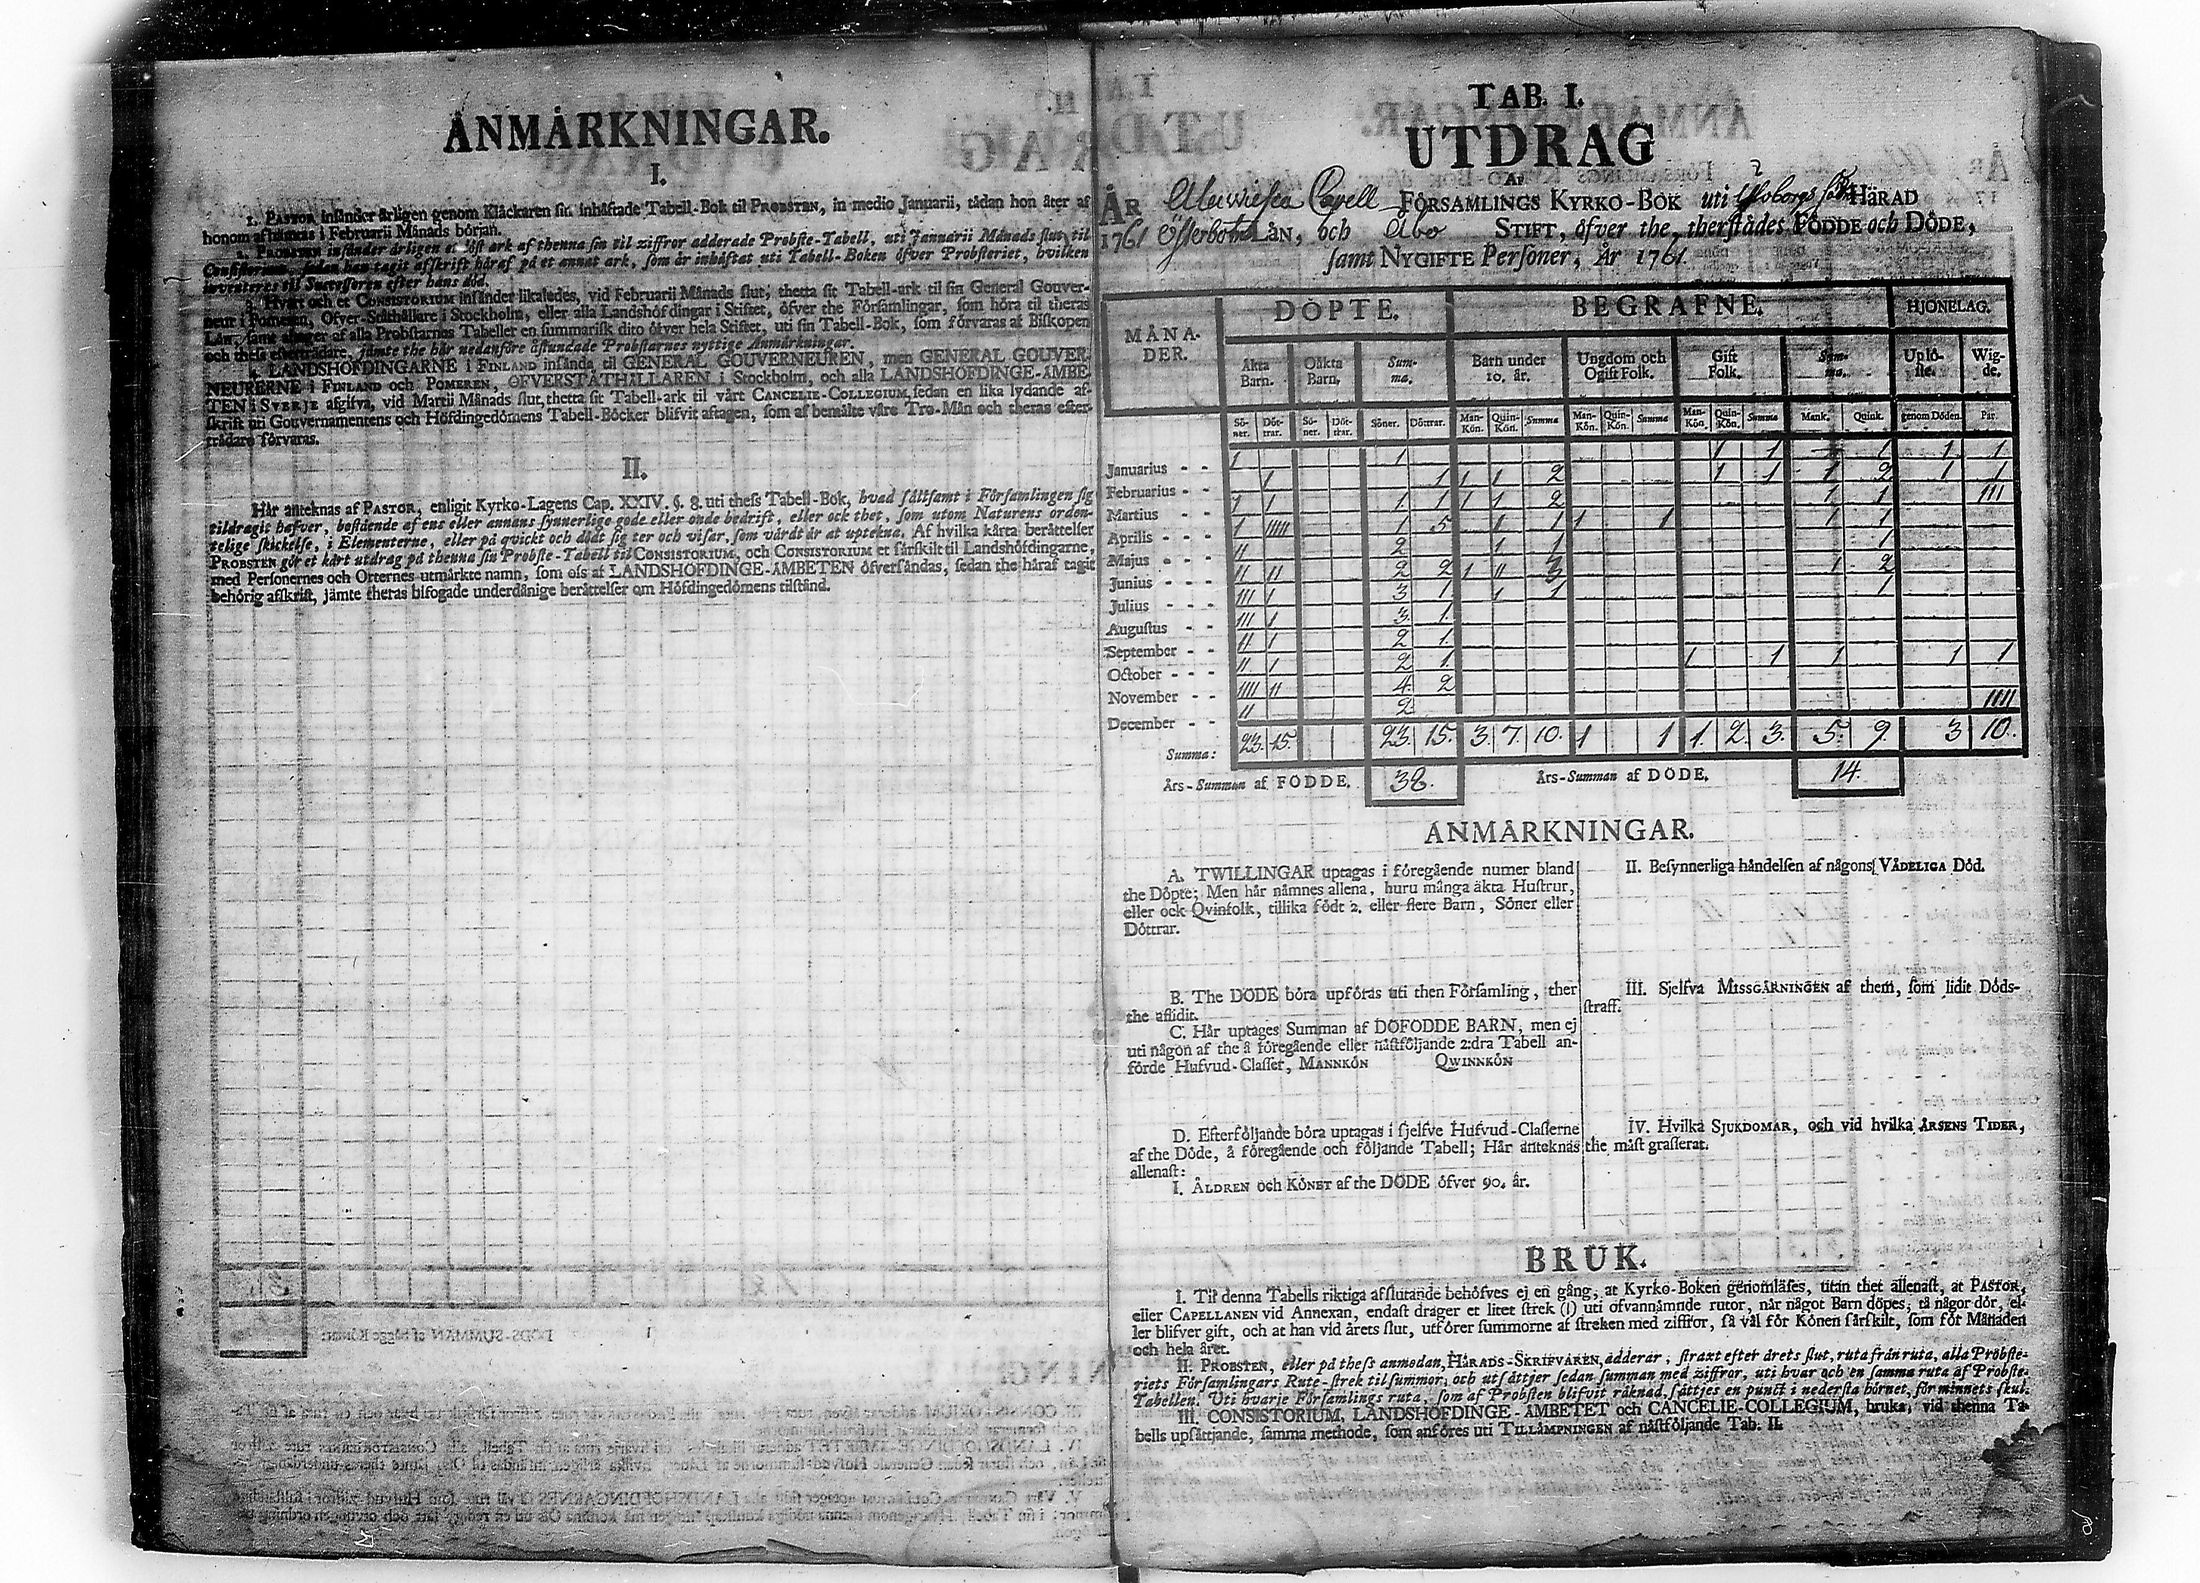 ANMÄRKNINGAR.
I.
1. PASTOR insänder årligen genom Klåckaren sin inhäftade Tabell-Bok til PROBSTEN, in medio Januarii, tådan hon åter af
honom afhämtas i Februarii Månads början.
2. PROBSTEN insänder årligen et löst ark af thenna sin til ziffror adderade Probste-Tabell, uti Januarii Månads slut, til
Consistorium, sedan han tagit afskrift häraf på et annat ark, som är inhäftat uti Tabell-Boken öfver Probsteriet, hvilken
inventeres til Successoren efter hans död.
3. Hvart och et CONSISTORIUM insänder likaledes, vid Februarii Månads slut, thetta sit Tabell-ark til sin General Gouver-
neur i Pomeren, Öfver-Ståthållare i Stockholm, eller alla Landshöfdingar i Stiftet, öfver the Församlingar, som höra til theras
Län, samt aflager of alla Probstarnes Tabeller en summarisk dito öfver hela Stiftet, uti sin Tabell-Bok, som förvaras af Biskopen
och thess efterträdare, jämte the här nedanföre åstundade Probstarnes nyttige Anmärkningar.
4. LANDSHÖFDINGARNE i FINLAND insända til GENERAL GOUVERNEUREN, men GENERAL GOUVER-
NEURERNE i FINLAND och POMEREN, ÖFVERSTÅTHÅLLAREN i Stockholm, och alla LANDSHÖFDINGE-ÄMBE-
TEN i SVERJE afgifva, vid Martii Månads slut, thetta sit Tabell-ark til vårt CANCELIE-COLLEGIUM, sedan en lika lydande af-
skrift uti Gouvernamentens och Höfdingedömens Tabell-Böcker blifvit aftagen, som af bemälte våre Tro-Män och theras efter-
trädare förvaras.
II.
Här anteknas af PASTOR, enligit Kyrko-Lagens Cap. XXIV. §. 8. uti thess Tabell-Bok, hvad sällsamt i Församlingen sig
tildragit hafver, bestående af ens eller annans synnerlige gode eller onde bedrift, eller ock thet, som utom Naturens orden-
telige skickelse, i Elementerne, eller på qvickt och dödt sig ter och visar, som värdt är at uptekna. Af hvilka kårta berättelser
PROBSTEN gör et kårt utdrag på thenna sin Probste-Tabell til CONSISTORIUM, och CONSISTORIUM et särskilt til Landshöfdingarne,
med Personernes och Orternes utmärkte namn, som oss af LANDSHÖFDINGE-ÄMBETEN öfversändas, sedan the häraf tagit
behörig afskrift, jämte theras bifogade underdånige berättelser om Höfdingedömens tilstånd.
TAB. I.
UTDRAG
AF
ÅR Capell FÖRSAMLINGS KYRKO-BOK uti HÄRAD
1761 Österbotns LÄN, och Åbo STIFT, öfver the, therstädes FÖDDE och DÖDE,
samt NYGIFTE Personer, År 1761.
MÅNA-DER. DÖPTE. BEGRAFNE. HJONELAG.
Äkta Barn. Oäkta Barn. Summa. Barn under 10. år. Ungdom och Ogift Folk. Gift Folk. Summa. Uplöste. Wigde.
Söner. Döttrar. Söner. Döttrar. Söner. Döttrar. Man-Kön. Quin-Kön. Summa Man-Kön. Quin-Kön. Summa Man-Kön. Quin-Kön. Summa Mank. Quink. genom Döden. Par.
Januarius - - 1 1 1 1 1 1 1
Februarius - - 1 1 1 1 2 1 1 1 2 1 1
Martius - - 1 1 1 1 1 1 2 1 1 III
Aprilis - - 1 IIIII 1 5 1 1 1 1 1 1
Majus - - II 2 1 1 1
Junius - - II II 2 2 1 II 3 1 2
Julius - - III 1 3 1 1 1 1
Augustus - - III 1 3. 1.
September - - II 1 2 1.
October - - - II 1 2 1. 1 1 1 1 1
November - - IIII II 4. 2
December - - II 2 IIII
Summa: 23. 15. 23. 15. 3. 7. 10. 1 1 1. 2. 3. 5. 9. 3 10.
Års-Summan af FÖDDE. 38. Års-Summan af DÖDE. 14.
ANMÄRKNINGAR.
A. TWILLINGAR uptagas i föregående numer bland
the Döpte; Men här nämnes allena, huru många äkta Hustrur,
eller ock Qvinfolk, tillika födt 2. eller flere Barn, Söner eller
Döttrar.
B. The DÖDE böra upföras uti then Församling, ther
the aflidit.
C. Här uptages Summan af DÖFÖDDE BARN, men ej
uti någon af the å föregående eller nästföljande 2:dra Tabell an-
förde Hufvud-Classer, MANNKÖN QWINNKÖN
D. Efterföljande böra uptagas i sjelfve Hufvud-Classerne
af the Döde, å föregående och följande Tabell; Här anteknas
allenast:
I. ÅLDREN och KÖNET af the DÖDE öfver 90. år.
II. Besynnerliga händelsen af någons VÅDELIGA Död.
III. Sjelfva MISSGÄRNINGEN af them, som lidit Döds-
straff.
IV. Hvilka SJUKDOMAR, och vid hvilka ÅRSENS TIDER,
the mäst grasserat.
BRUK.
I. Til denna Tabells riktiga afslutande behöfves ej en gång, at Kyrko-Boken genomläses, utan thet allenast, at PASTOR,
eller CAPELLANEN vid Annexan, endast drager et litet strek (I) uti ofvannämnde rutor, när något Barn döpes, tå någor dör, el-
ler blifver gift, och at han vid årets slut, utförer summorne af streken med ziffror, så väl för Könen särskilt, som för Månaden
och hela året.
II. PROBSTEN, eller på thess anmodan, HÄRADS-SKRIFVAREN, adderar, straxt efter årets slut, ruta från ruta, alla Probste-
riets Församlingars Rute-strek til summor, och utsättjer sedan summan med ziffror, uti hvar och en samma ruta af Probste-
Tabellen. Uti hvarje Församlings ruta, som af Probsten blifvit räknad, sättjes en punct i nedersta hörnet, för minnets skul.
III. CONSISTORIUM, LANDSHÖFDINGE-ÄMBETET och CANCELIE-COLLEGIUM, bruka, vid thenna Ta-
bells upsättjande, samma methode, som anföres uti TILLÄMPNINGEN af nästföljande Tab. II.